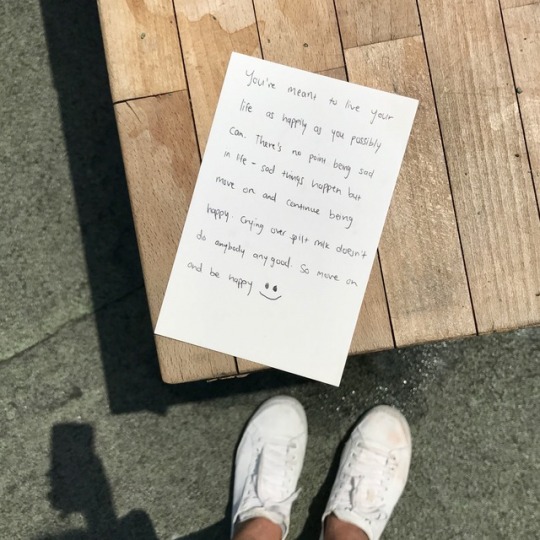 You're meant to live your
life as happily as you possibly
can. There's no point being sad
in life - sad things happen but
move on and continue being
happy. Crying over spilt milk doesn't
do anybody any good. So move on
and be happy